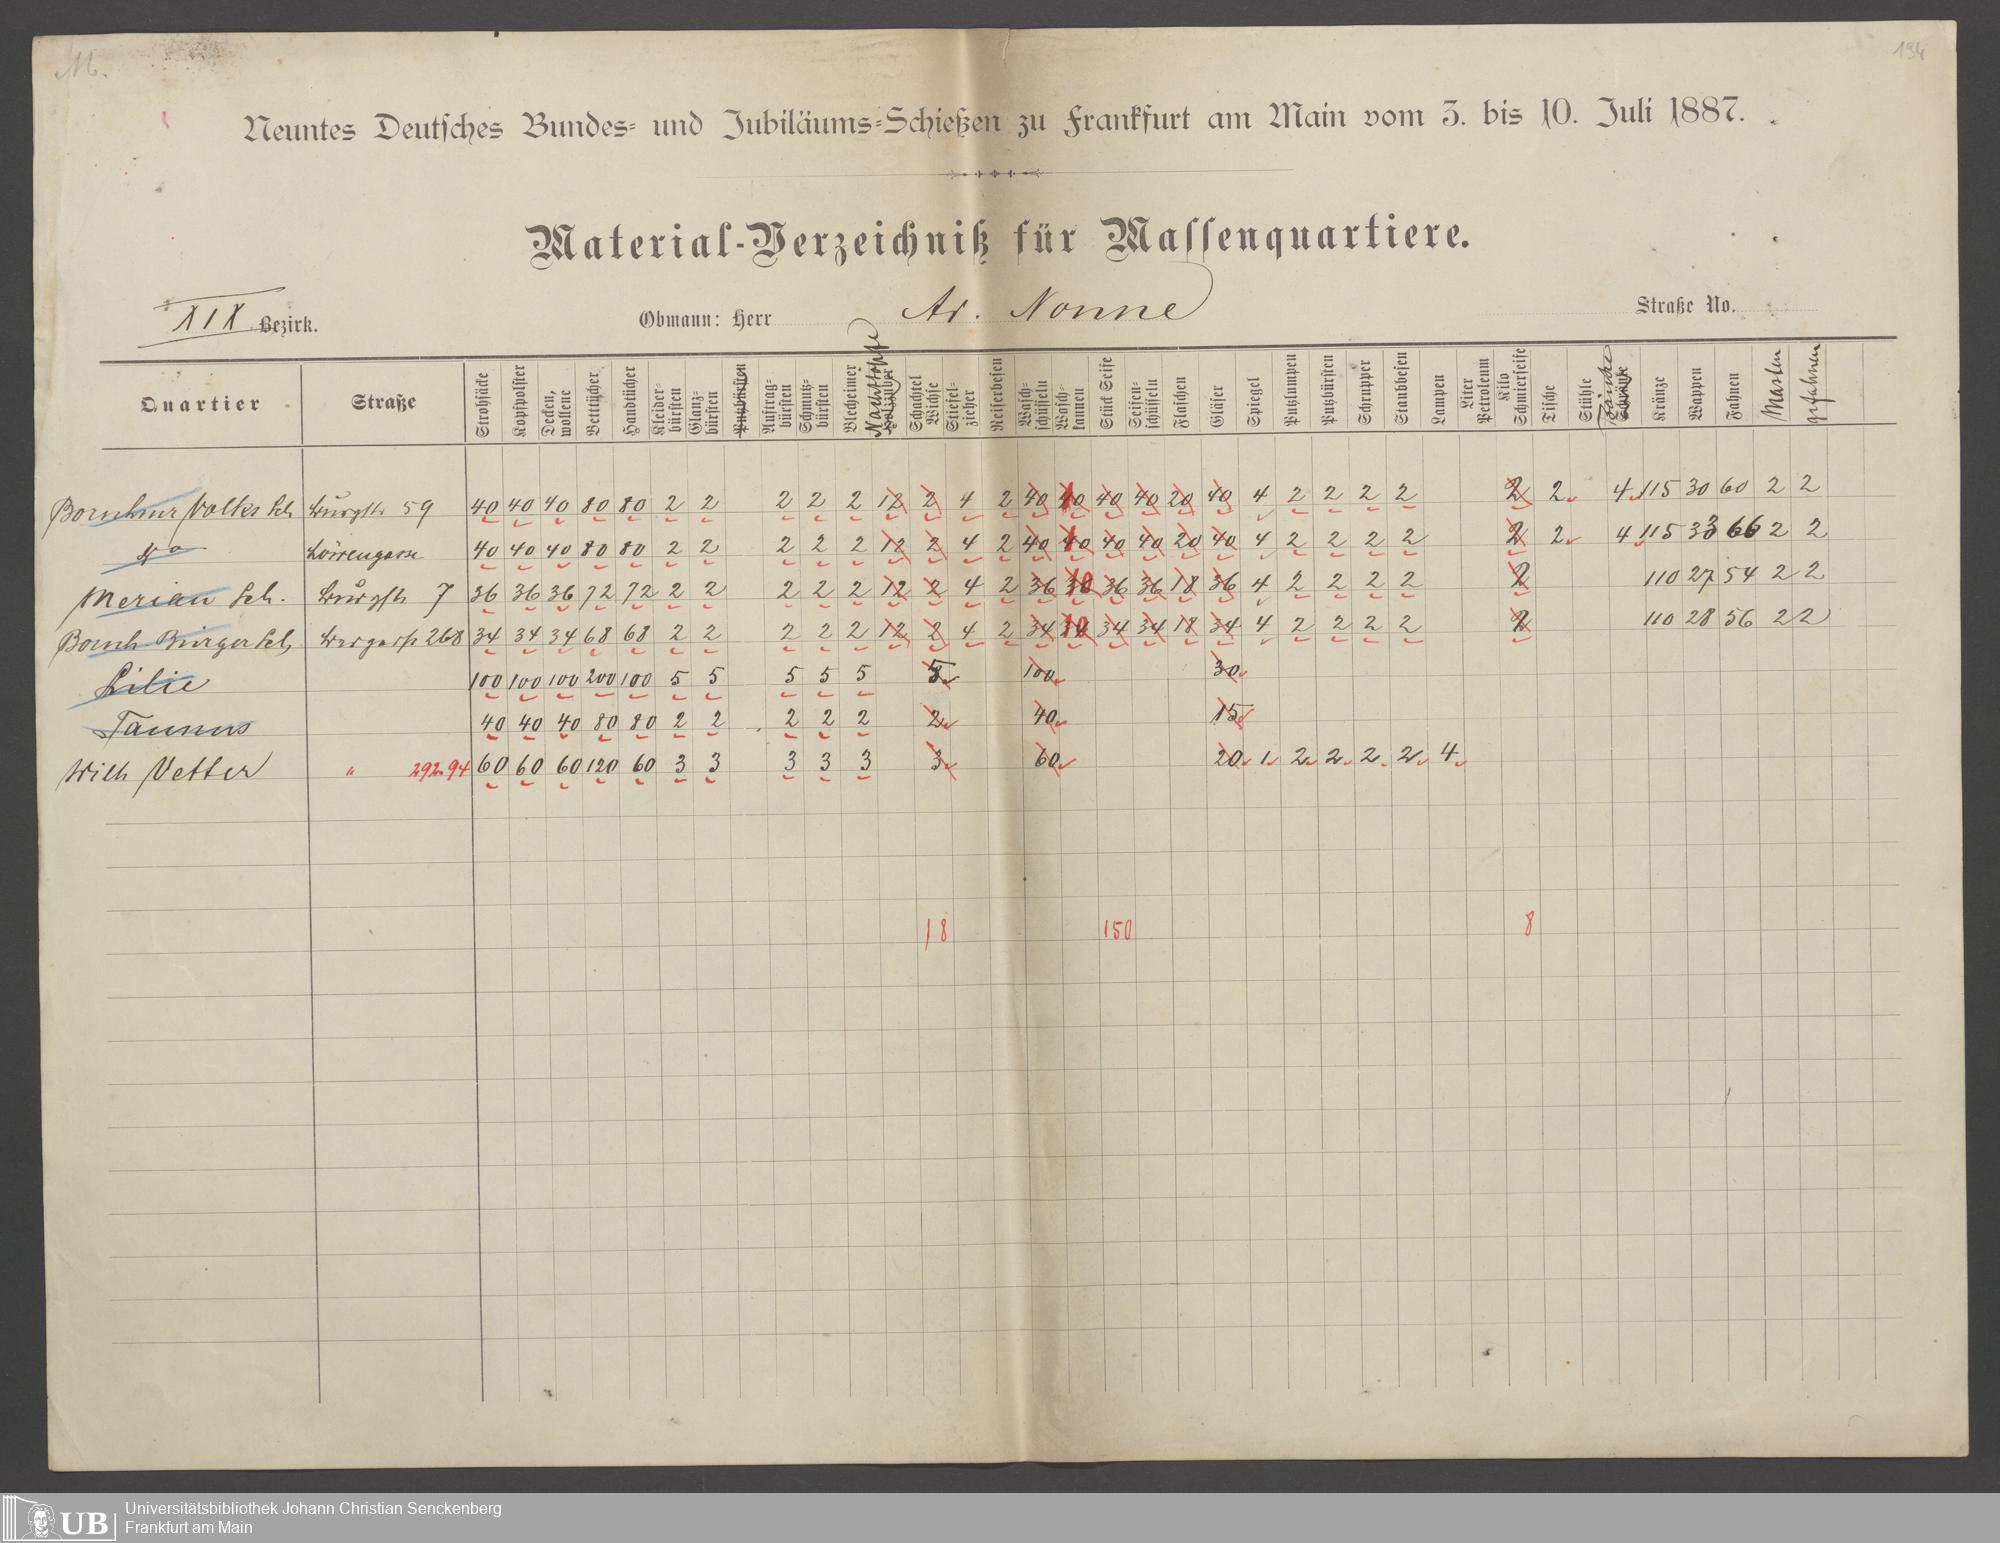 M.
194
Neuntes Deutsches Bundes= und Jubiläums=Schießen zu Frankfurt am Main vom 3. bis 10. Juli 1887.
Material-Verzeichniß für Massenquartiere.
XIX Bezirk. Obmann: Herr Ad. Nonne Straße No.
Quartier Straße Strohsäcke Kopfpolster Decken, wollene Betttücher Handtücher Kleider-bürsten Glanz-bürsten Putzbürsten Auftrag-bürsten Schmutz-bürsten Blecheimer Nachttöpfe Holzzuber Schachtel Wichse Stiefel-zieher Reiserbesen Wasch-schüsseln Wasch-kannen Stück Seife Seifen-schüsseln Flaschen Gläser Spiegel Putzlumpen Putzbürsten Schrupper Staubbesen Lampen Liter Petroleum Kilo Schmierseife Tische Stühle Bänke Schränke Kränze Wappen Fahnen Masten
Volks Sch 59 40 40 40 80 80 2 2 2 2 2 12 2 4 2 40 40 40 40 20 40 4 2 2 2 2 2 2 4 115 30 60 2 2
do Löwengasse 40 40 40 80 80 2 2 2 2 2 12 2 4 2 40 40 40 40 20 40 4 2 2 2 2 2 2 4 115 33 66 2 2
Merian Sch. 7 36 36 36 72 72 2 2 2 2 2 12 2 4 2 36 10 36 36 18 36 4 2 2 2 2 2 110 27 54 2 2
Bornh Bürger Sch 268 34 34 34 68 68 2 2 2 2 2 12 2 4 2 34 10 34 34 18 34 4 2 2 2 2 2 110 28 56 2 2
Lilie 100 100 100 200 100 5 5 5 5 5 5 100 30
Taunus 40 40 40 80 80 2 2 2 2 2 2 40 15
Wilh Vetter " 292.94 60 60 60 120 60 3 3 3 3 3 3 60 20 1 2 2 2 2 4
18 150 8
UB Universitätsbibliothek Johann Christian Senckenberg
Frankfurt am Main